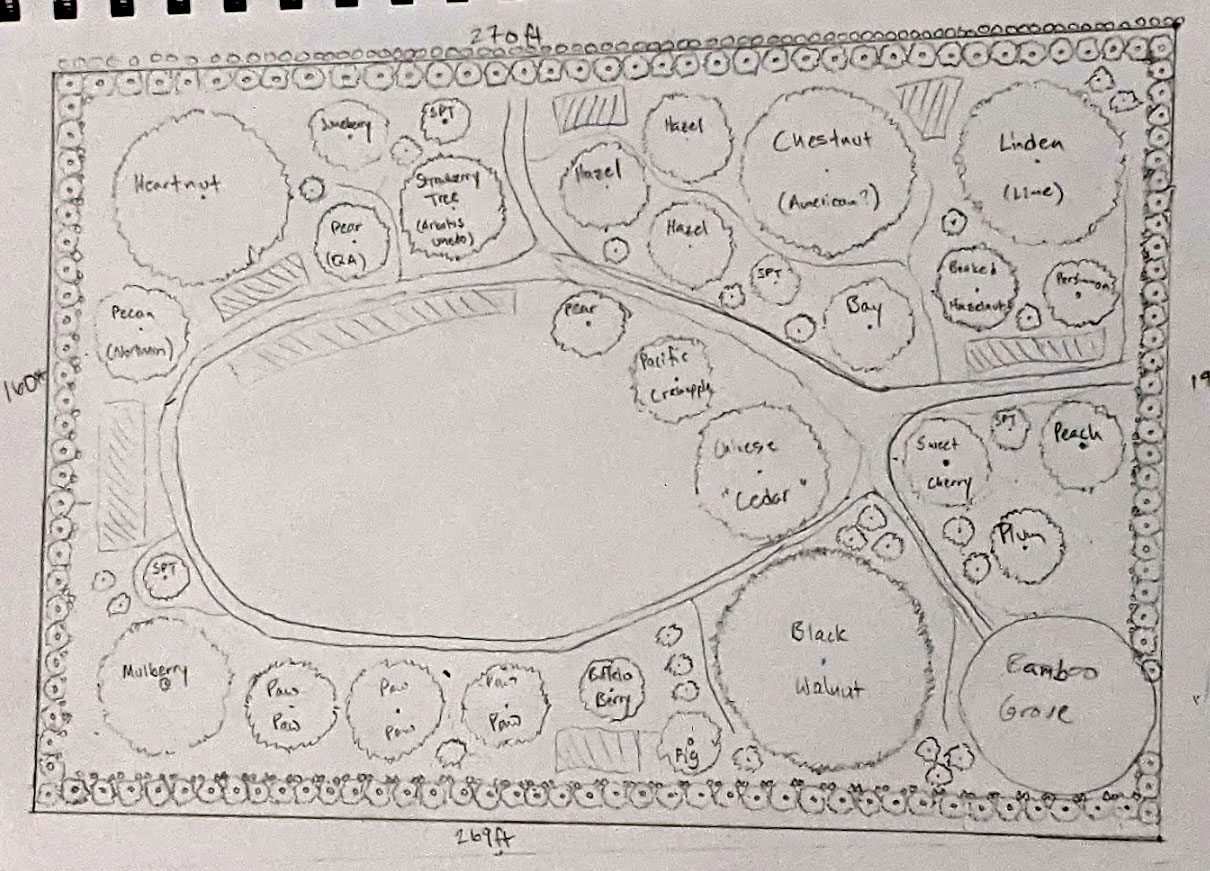 270ft
Juneberry
SPT
Hazel
Chestnut
(American?)
Linden
(Lime)
Heartnut
Strawberry
Tree
(Arbutus
unedo)
Hazel
Pear
(QA)
Hazel
SPT
Bay
Beaked
Hazelnut
Persimmon
Pecan
(Northern)
Pear
Pacific
Crabapple
160ft
19
Chinese
"Cedar"
Sweet
Cherry
SPT
Peach
Plum
SPT
Mulberry
Paw
Paw
Paw
Paw
Paw
Paw
Buffalo
Berry
Fig
Black
Walnut
Bamboo
Grove
269ft